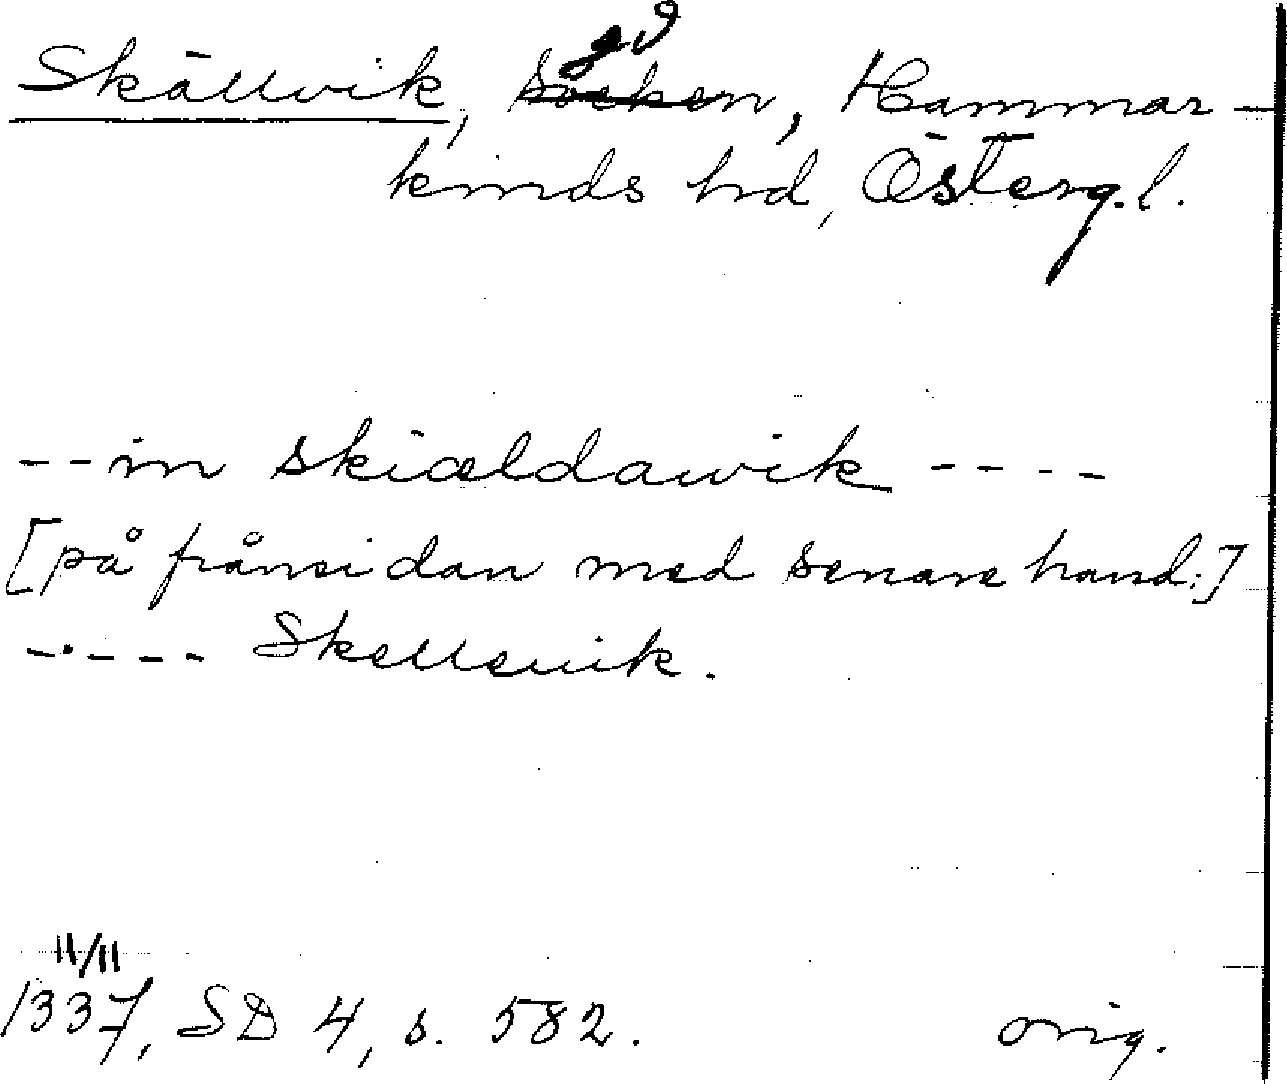 Skällvik, gd, Hammar-
kinds hd, Österg.l.
--in skiældawik ----
[på frånsidan med senare hand:]
----- Skelleuik.
11/11
1337, SD 4, s. 582. orig.